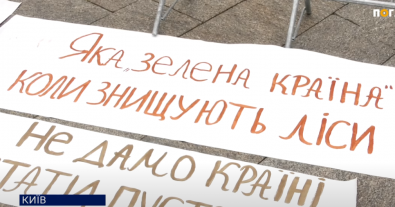 ЯКА „ЗЕЛЕНА КРАЇНА"
КОЛИ ЗНИЩУЮТЬ ЛІСИ
НЕ ДАМО КРАЇНІ
КИЇВ